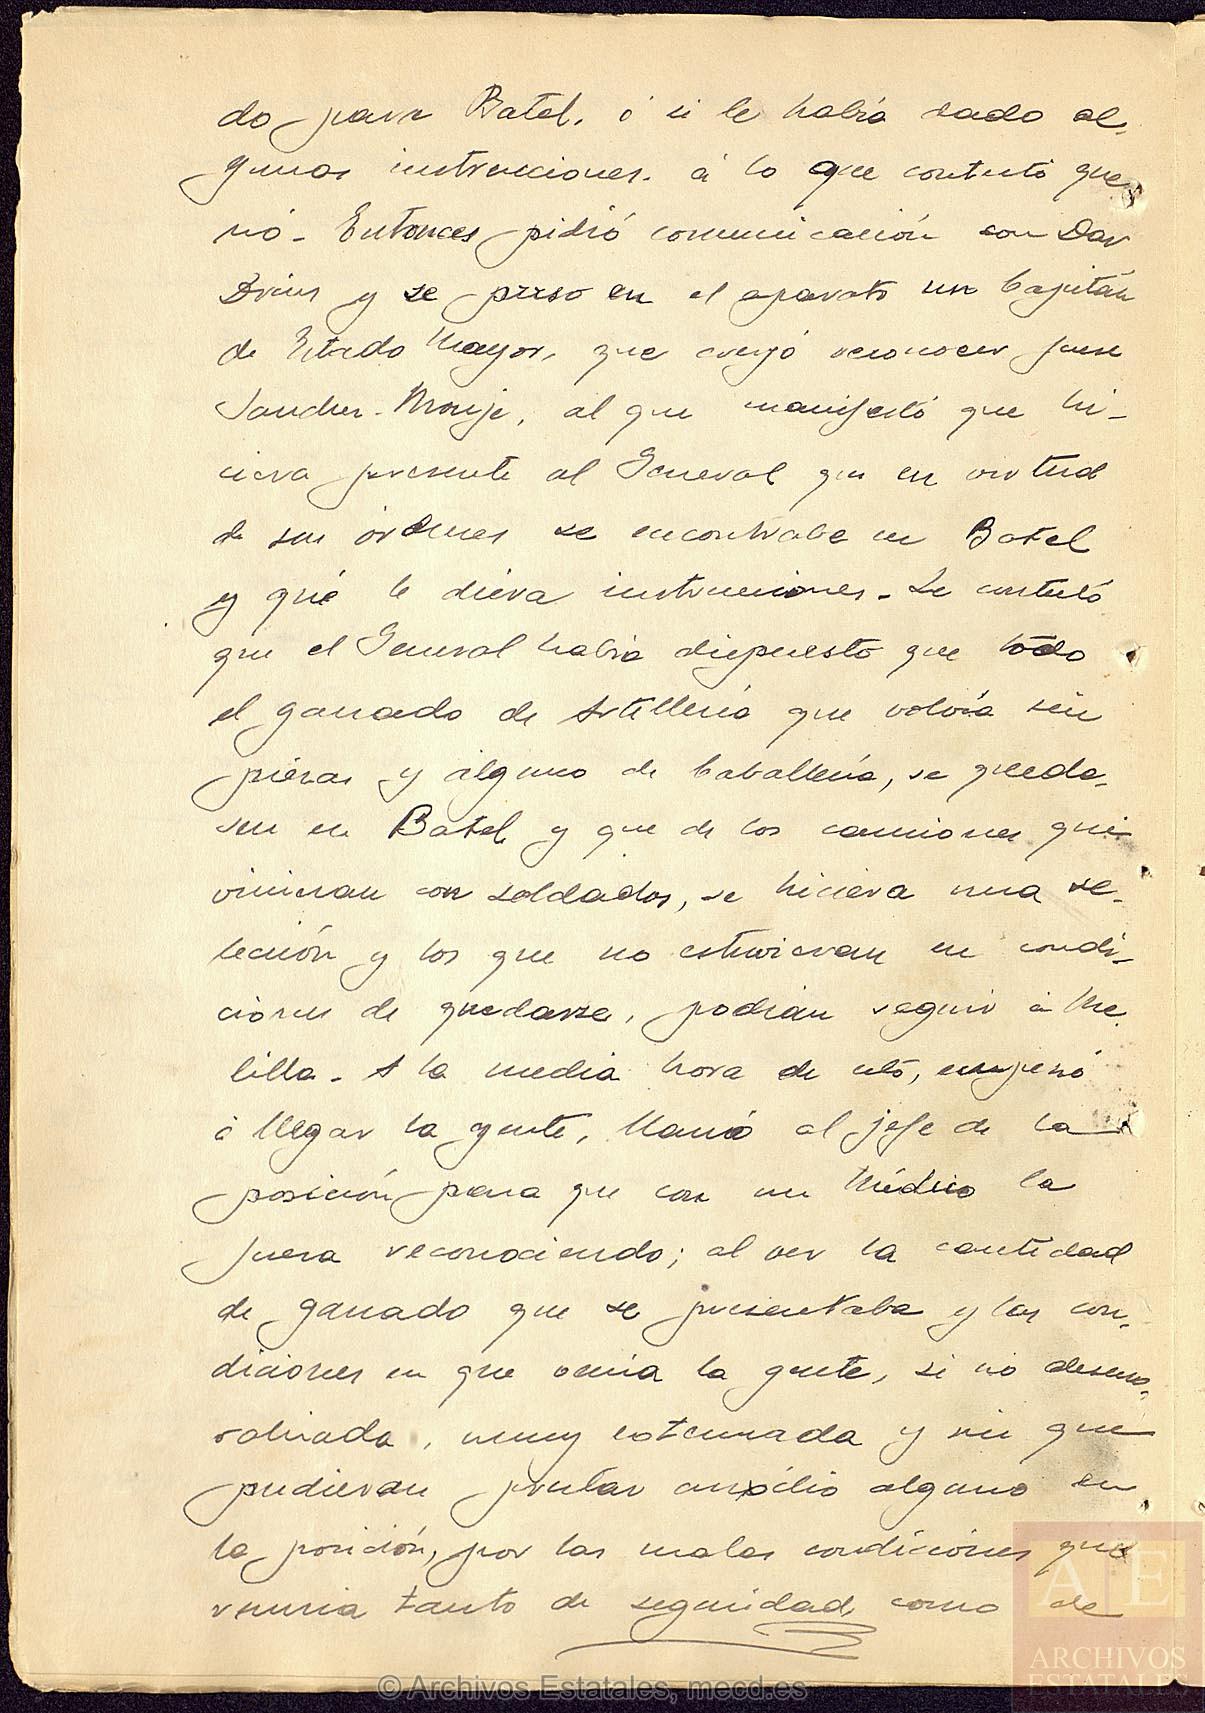 do para Batel, ó si le había dado al-
gunas instrucciones. á lo que contestó que
nó - Entonces pidió comunicación con Dar
Drius y se puso en el aparato un Capitán
de Estado Mayor, que creyó reconocer fuese
Sanchez-Monje, al que manifestó que hi-
ciera presente al General que en virtud
de sus órdenes se encontraba en Batel
y qué le diera instrucciones - Le contestó
que el General había dispuesto que todo
el ganado de Artillería que volvía sin
piezas y alguno de Caballería, se queda-
sen en Batel y que de los camiones que
vinieran con soldados, se hiciera una se-
lección y los que no estuvieran en condi-
ciones de quedarse, podían seguir á Me-
lilla - A la media hora de esto, empezó
á llegar la gente, llamó al jefe de la
posición para que con un Médico la
fuera reconociendo; al ver la cantidad
de ganado que se presentaba y las con-
diciones en que venía la gente, si no desmo-
ralizada, muy extenuada y sin que
pudieran prestar auxilio alguno en
la posición, por las malas condiciones que
reunía tanto de seguridad, como de
© Archivos Estatales, mecd.es
AE
ARCHIVOS
ESTATALES